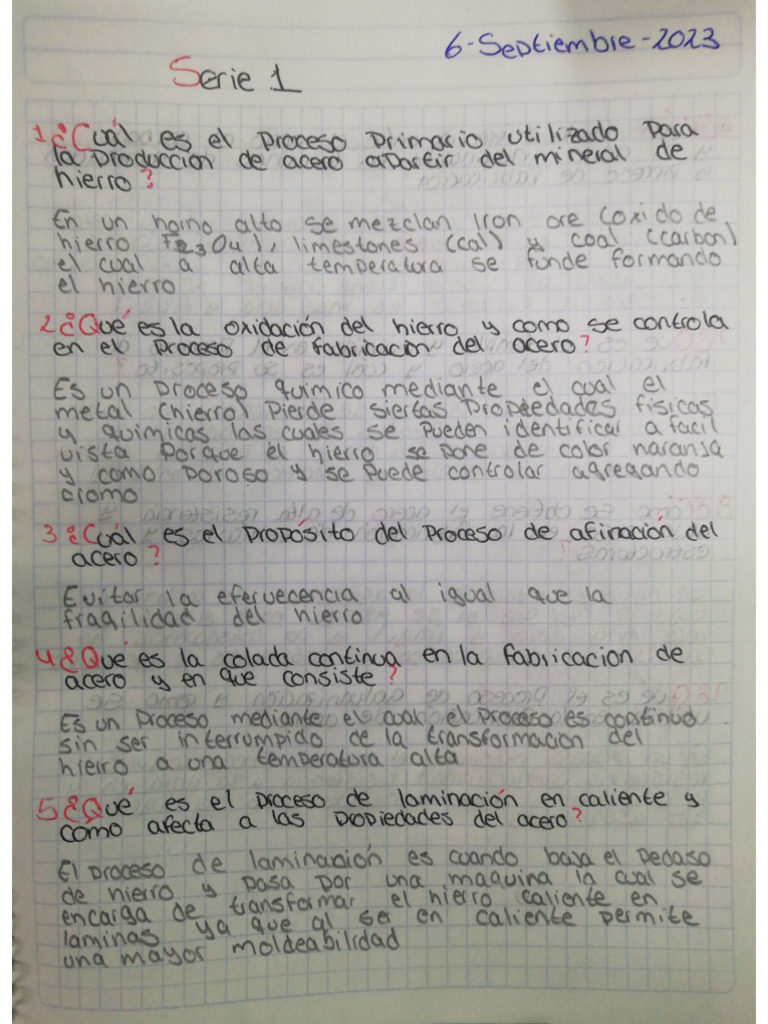 6-Septiembre-2023
Serie 1
1¿Cuál es el proceso primario utilizado para
la producción de acero apartir del mineral de
hierro?
En un horno alto se mezclan Iron ore (oxido de
hierro Fe3O4), limestones (cal) y coal (carbon)
el cual a alta temperatura se funde formando
el hierro
2¿Qué es la oxidación del hierro y como se controla
en el proceso de fabricación del acero?
Es un proceso químico mediante el cual el
metal (hierro) pierde siertas propiedades físicas
y quimicas las cuales se pueden identificar a facil
vista porque el hierro se pone de color naranja
y como poroso y se puede controlar agregando
cromo
3¿Cuál es el propósito del proceso de afinación del
acero?
Evitar la efervecencia al igual que la
fragilidad del hierro
4¿Qué es la colada continua en la fabricacion de
acero y en que consiste?
Es un proceso mediante el cual el proceso es continuo
sin ser interrumpido de la transformacion del
hierro a una temperatura alta
5¿Qué es el proceso de laminación en caliente y
como afecta a las propiedades del acero?
El proceso de laminación es cuando baja el pedaso
de hierro y pasa por una maquina la cual se
encarga de transformar el hierro caliente en
laminas ya que al ser en caliente permite
una mayor moldeabilidad